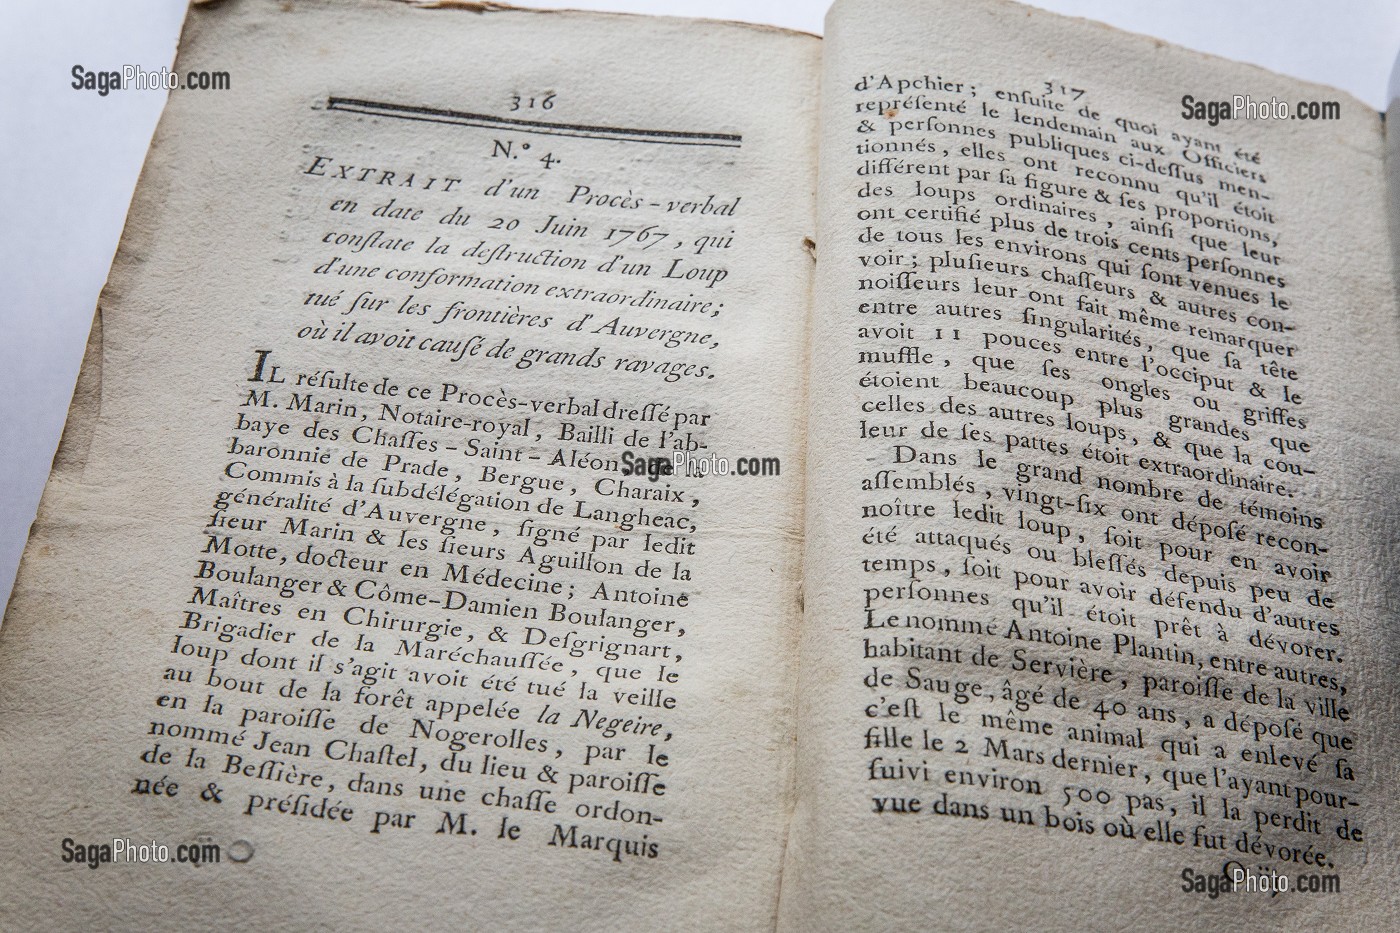 316
N.° 4.
EXTRAIT d'un Procès-verbal
en date du 20 Juin 1767, qui
conſtate la deſtruction d'un Loup
d'une conformation extraordinaire;
tué ſur les frontières d'Auvergne,
où il avoit cauſé de grands ravages.
IL réſulte de ce Procès-verbal dreſſé par
M. Marin, Notaire-royal, Bailli de l'ab-
baye des Chaſſes-Saint-Aléon, la
baronnie de Prade, Bergue, Charaix,
Commis à la ſubdélégation de Langheac,
généralité d'Auvergne, ſigné par ledit
ſieur Marin & les ſieurs Aguillon de la
Motte, docteur en Médecine; Antoine
Boulanger & Côme-Damien Boulanger,
Maîtres en Chirurgie, & Deſgrignart,
Brigadier de la Maréchauſſée, que le
loup dont il s'agit avoit été tué la veille
au bout de la forêt appelée la Negeire,
en la paroiſſe de Nogerolles, par le
nommé Jean Chaſtel, du lieu & paroiſſe
de la Beſſière, dans une chaſſe ordon-
née & préſidée par M. le Marquis
317
d'Apchier; enſuite de quoi ayant été
repréſenté le lendemain aux Officiers
& perſonnes publiques ci-deſſus men-
tionnés, elles ont reconnu qu'il étoit
différent par ſa figure & ſes proportions,
des loups ordinaires, ainſi que leur
ont certifié plus de trois cents perſonnes
de tous les environs qui ſont venues le
voir; pluſieurs chaſſeurs & autres con-
noiſſeurs leur ont fait même remarquer
entre autres ſingularités, que ſa tête
avoit 11 pouces entre l'occiput & le
muffle, que ſes ongles ou griffes
étoient beaucoup plus grandes que
celles des autres loups, & que la cou-
leur de ſes pattes étoit extraordinaire.
Dans le grand nombre de témoins
aſſemblés, vingt-ſix ont dépoſé recon-
noître ledit loup, ſoit pour en avoir
été attaqués ou bleſſés depuis peu de
temps, ſoit pour avoir défendu d'autres
perſonnes qu'il étoit prêt à dévorer.
Le nommé Antoine Plantin, entre autres,
habitant de Servière, paroiſſe de la ville
de Sauge, âgé de 40 ans, a dépoſé que
c'eſt le même animal qui a enlevé ſa
fille le 2 Mars dernier, que l'ayant pour-
ſuivi environ 500 pas, il la perdit de
vue dans un bois où elle fut dévorée.
SagaPhoto.com
SagaPhoto.com
SagaPhoto.com
SagaPhoto.com
SagaPhoto.com